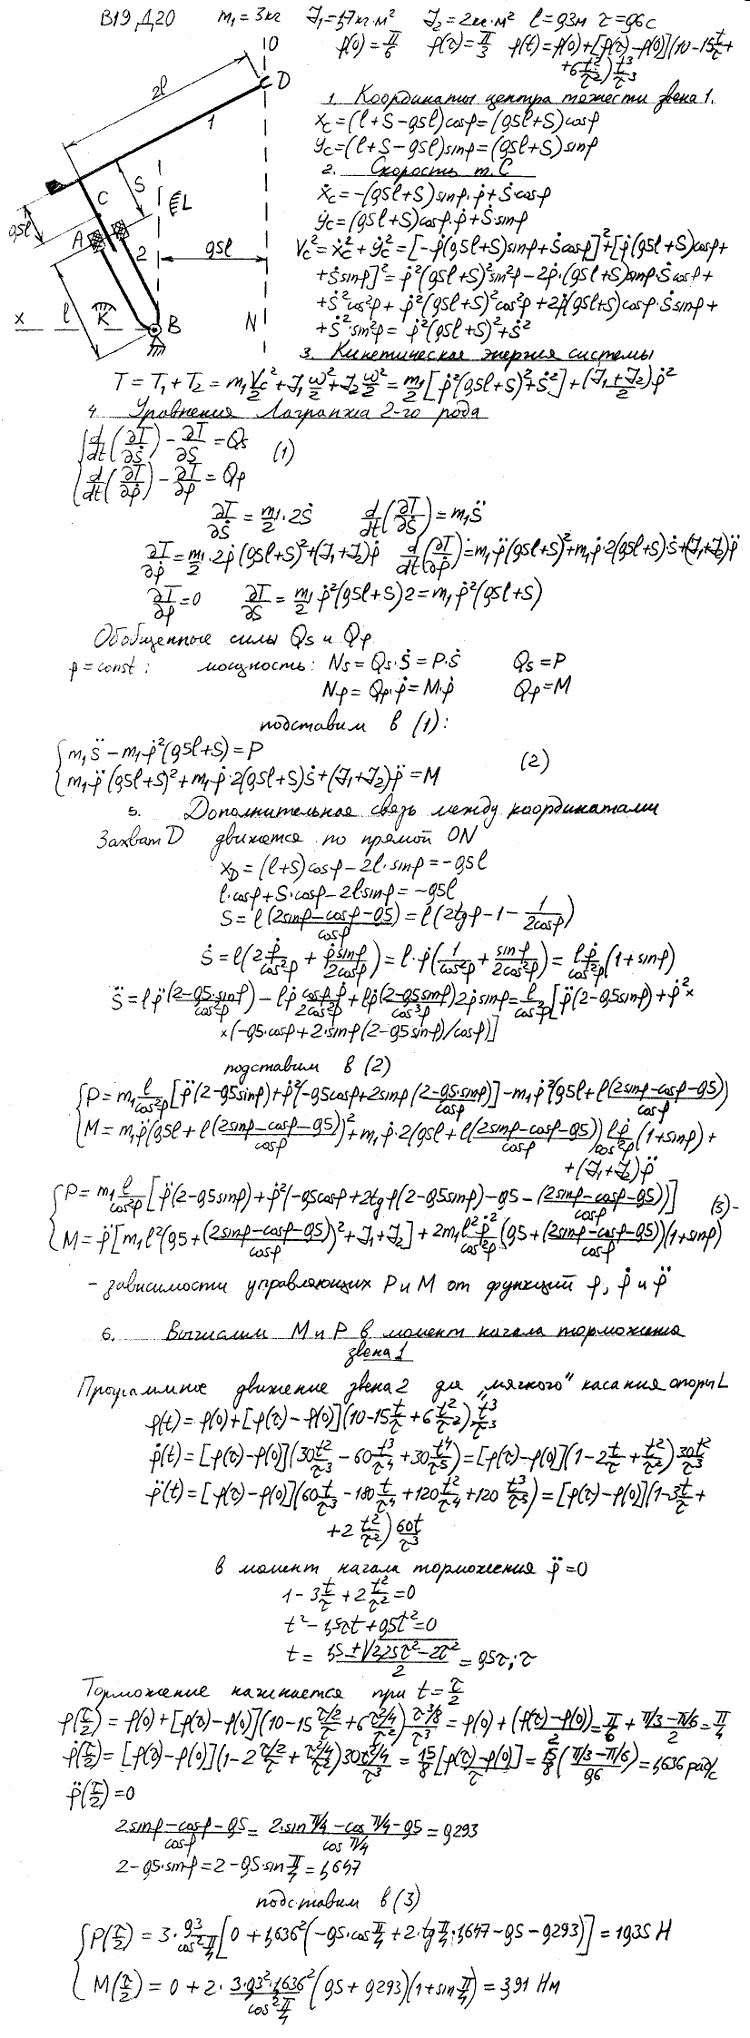 В19 Д20 m₁=3кг J₁=1,7кг·м² J₂=2кг·м² l=0,3м τ=0,6с
φ(0)=π/6 φ(τ)=π/3 φ(t)=φ(0)+[φ(τ)-φ(0)](10-15t/τ+
+6t²/τ²)t³/τ³
O
D
2l
1
S
C
0,5l
A
2
L
0,5l
l
K
x
B
N
1. Координаты центра тяжести звена 1.
x_C=(l+S-0,5l)cosφ=(0,5l+S)cosφ
y_C=(l+S-0,5l)sinφ=(0,5l+S)sinφ
2. Скорость т. С
ẋ_C=-(0,5l+S)sinφ·φ̇+Ṡ·cosφ
ẏ_C=(0,5l+S)cosφ·φ̇+Ṡ·sinφ
V_C²=ẋ_C²+ẏ_C²=[-φ̇(0,5l+S)sinφ+Ṡcosφ]²+[φ̇(0,5l+S)cosφ+
+Ṡsinφ]²=φ̇²(0,5l+S)²sin²φ-2φ̇·(0,5l+S)sinφ·Ṡcosφ+
+Ṡ²cos²φ+φ̇²(0,5l+S)²cos²φ+2φ̇(0,5l+S)cosφ·Ṡsinφ+
+Ṡ²·sin²φ=φ̇²(0,5l+S)²+Ṡ²
3. Кинетическая энергия системы
T=T₁+T₂=m₁V_C²/2+J₁ω²/2+J₂ω²/2=m₁/2[φ̇²(0,5l+S)²+Ṡ²]+(J₁+J₂)/2 φ̇²
4. Уравнения Лагранжа 2-го рода
{d/dt(∂T/∂Ṡ)-∂T/∂S=Q_S
{d/dt(∂T/∂φ̇)-∂T/∂φ=Q_φ (1)
∂T/∂Ṡ=m₁/2·2Ṡ d/dt(∂T/∂Ṡ)=m₁S̈
∂T/∂φ̇=m₁/2·2φ̇(0,5l+S)²+(J₁+J₂)φ̇ d/dt(∂T/∂φ̇)=m₁φ̈(0,5l+S)²+m₁φ̇·2(0,5l+S)·Ṡ+(J₁+J₂)φ̈
∂T/∂φ=0 ∂T/∂S=m₁/2 φ̇²(0,5l+S)2=m₁φ̇²(0,5l+S)
Обобщенные силы Q_S и Q_φ
φ=const: мощность: N_S=Q_S·Ṡ=P·Ṡ Q_S=P
N_φ=Q_φ·φ̇=M·φ̇ Q_φ=M
подставим в (1):
{m₁S̈-m₁φ̇²(0,5l+S)=P
{m₁φ̈(0,5l+S)²+m₁φ̇·2(0,5l+S)Ṡ+(J₁+J₂)φ̈=M (2)
5. Дополнительная связь между координатами
Захват D движется по прямой ON
x_D=(l+S)cosφ-2l·sinφ=-0,5l
l·cosφ+S·cosφ-2lsinφ=-0,5l
S=l(2sinφ-cosφ-0,5)/cosφ=l(2tgφ-1-1/2cosφ)
Ṡ=l(2φ̇/cos²φ+φ̇sinφ/2cos²φ)=l·φ̇(1/cos²φ+sinφ/2cos²φ)=lφ̇/cos²φ(1+sinφ)
S̈=lφ̈(2-0,5·sinφ)/cos²φ-lφ̇cosφ·φ̇/2cos²φ+lφ̇(2-0,5sinφ)/cos³φ 2φ̇sinφ=l/cos²φ[φ̈(2-0,5sinφ)+φ̇²×
×(-0,5·cosφ+2·sinφ(2-0,5sinφ)/cosφ)]
подставим в (2)
{P=m₁l/cos²φ[φ̈(2-0,5sinφ)+φ̇²(-0,5cosφ+2sinφ(2-0,5·sinφ)/cosφ)]-m₁φ̇²(0,5l+l(2sinφ-cosφ-0,5)/cosφ)
{M=m₁φ̈(0,5l+l(2sinφ-cosφ-0,5)/cosφ)²+m₁φ̇·2(0,5l+l(2sinφ-cosφ-0,5)/cosφ)lφ̇/cos²φ(1+sinφ)+
+(J₁+J₂)φ̈
{P=m₁l/cos²φ[φ̈(2-0,5sinφ)+φ̇²(-0,5cosφ+2tgφ(2-0,5sinφ)-0,5-(2sinφ-cosφ-0,5)/cosφ)]
{M=φ̈[m₁l²(0,5+(2sinφ-cosφ-0,5)/cosφ)²+J₁+J₂]+2m₁l²φ̇²/cos²φ(0,5+(2sinφ-cosφ-0,5)/cosφ)(1+sinφ) (3)-
- зависимости управляющих P и M от функций φ, φ̇ и φ̈
6. Вычислим M и P в момент начала торможения
звена 1
Программное движение звена 2 для „мягкого" касания опоры L
φ(t)=φ(0)+[φ(τ)-φ(0)](10-15t/τ+6t²/τ²)t³/τ³
φ̇(t)=[φ(τ)-φ(0)](30t²/τ³-60t³/τ⁴+30t⁴/τ⁵)=[φ(τ)-φ(0)](1-2t/τ+t²/τ²)30t²/τ³
φ̈(t)=[φ(τ)-φ(0)](60t/τ³-180t²/τ⁴+120t²/τ⁴+120t³/τ⁵)=[φ(τ)-φ(0)](1-3t/τ+
+2t²/τ²)60t/τ³
в момент начала торможения φ̈=0
1-3t/τ+2t²/τ²=0
t²-1,5τt+0,5τ²=0
t=(1,5±√(2,25τ²-2τ²))/2=0,5τ;τ
Торможение начинается при t=τ/2
φ(τ/2)=φ(0)+[φ(τ)-φ(0)](10-15(τ/2)/τ+6(τ²/4)/τ²)(τ³/8)/τ³=φ(0)+(φ(τ)-φ(0))/2=π/6+(π/3-π/6)/2=π/4
φ̇(τ/2)=[φ(τ)-φ(0)](1-2(τ/2)/τ+(τ²/4)/τ²)30(τ²/4)/τ³=15/8[φ(τ)-φ(0)]/τ=15/8((π/3-π/6)/0,6)=1,636 рад/с
φ̈(τ/2)=0
(2sinφ-cosφ-0,5)/cosφ=(2·sinπ/4-cosπ/4-0,5)/cosπ/4=0,293
2-0,5·sinφ=2-0,5·sinπ/4=1,647
подставим в (3)
{P(τ/2)=3·0,3/cos²π/4[0+1,636²(-0,5·cosπ/4+2·tgπ/4·1,647-0,5-0,293)]=10,35 Н
{M(τ/2)=0+2·3·0,3²·1,636²/cos²π/4(0,5+0,293)(1+sinπ/4)=3,91 Нм